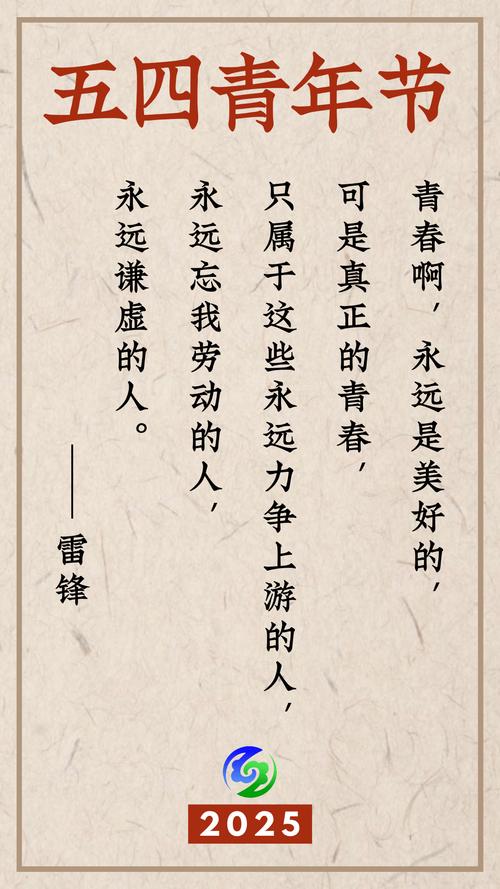 五四青年节
青春啊，永远是美好的，
可是真正的青春，
只属于这些永远力争上游的人，
永远忘我劳动的人，
永远谦虚的人。
——雷锋
2025